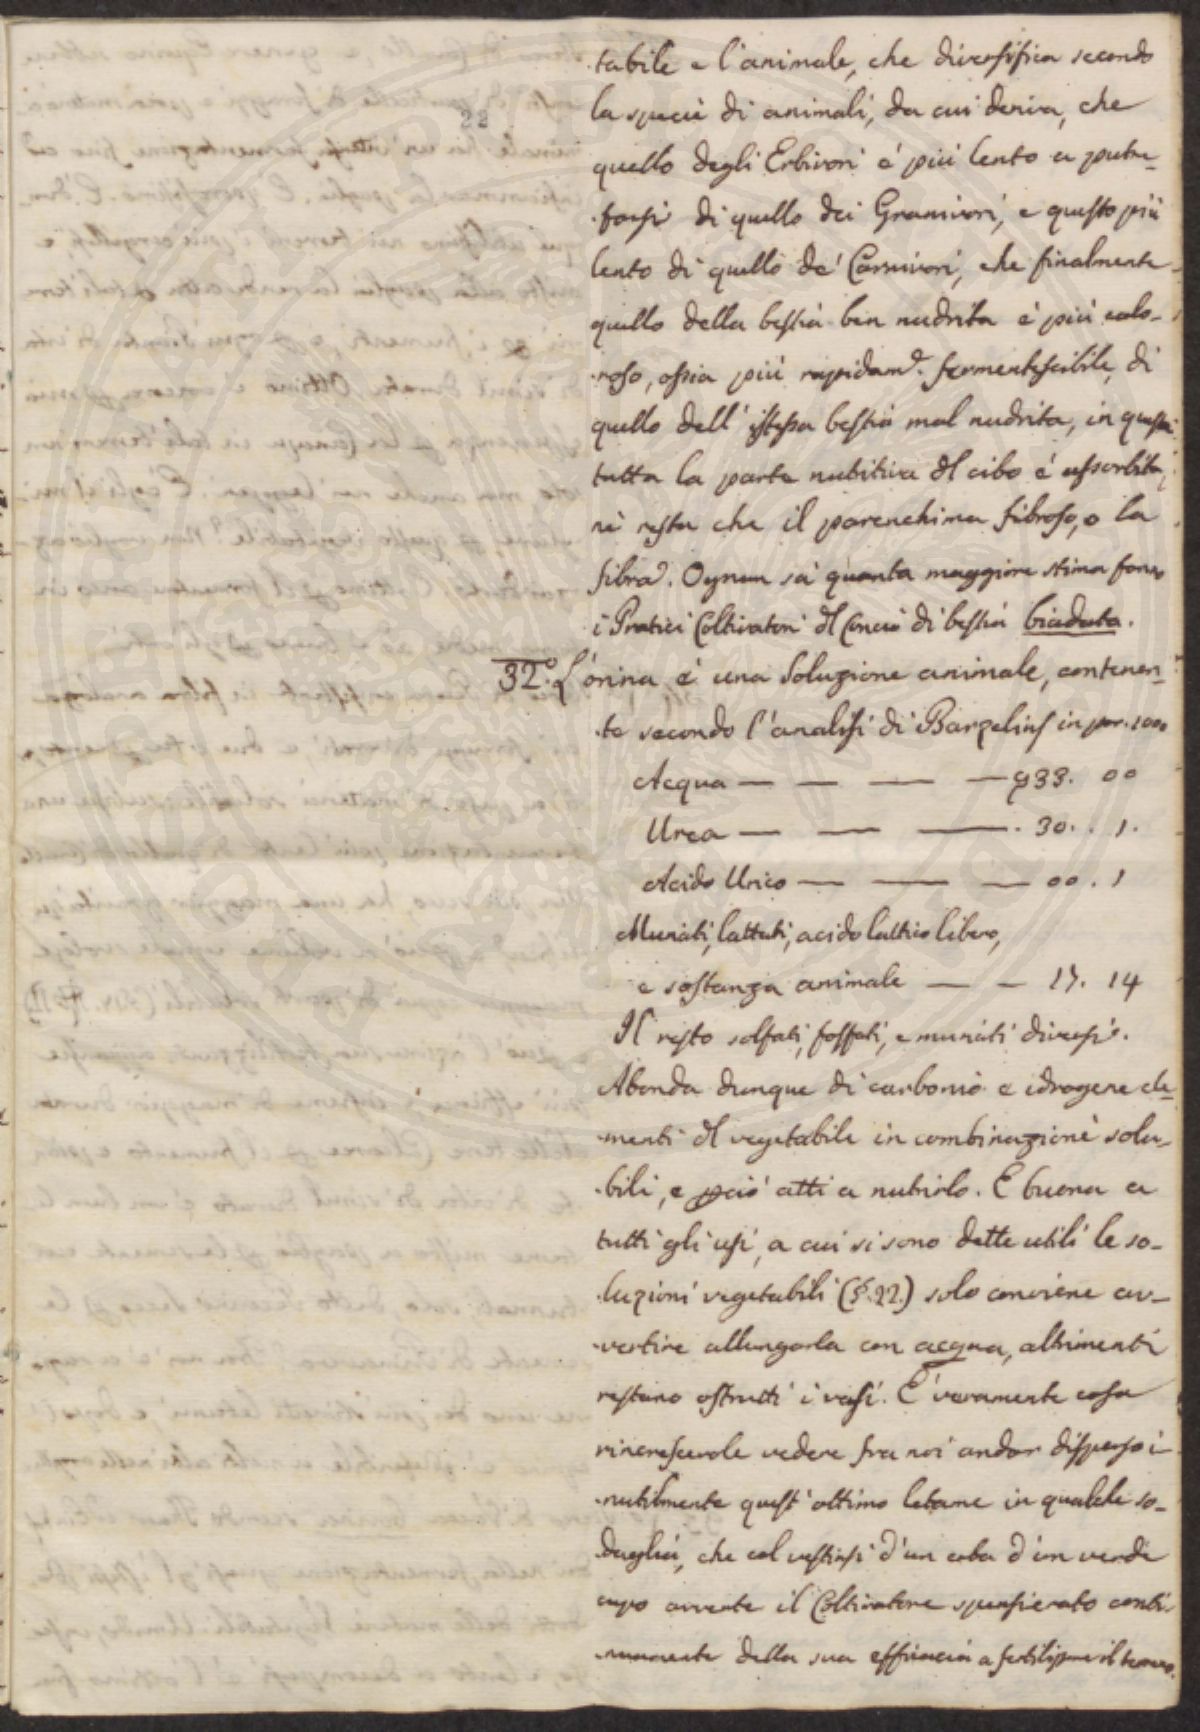 22
tabile e l'animale, che diversifica secondo
la specie di animali, da cui deriva, che
quello degli Erbivori è più lento a putre-
farsi di quello dei Granivori, e questo più
lento di quello de' Carnivori, che finalmente
quello della bestia ben nudrita è più calo-
roso, ossia più rapidam.e fermentescibile, di
quello dell' istessa bestia mal nudrita, in questa
tutta la parte nutritiva del cibo è assorbita,
nè resta che il parenchima fibroso, o la
fibra. Ognun sà quanta maggiore stima fanno
i Pratici Coltivatori del Concio di bestia biadata.
32.° L'orina è una soluzione animale, contenen-
te secondo l'analisi di Barzelius in par. 1000
Acqua — — — — 933. 00
Urea — — — . 30. . 1.
Acido Urico — — — 00 . 1
Muriati, lattati, acido lattico libero,
e sostanza animale — — 17. 14
Il resto solfati, fosfati, e muriati diversi.
Abonda dunque di carbonio e idrogene ele-
menti del vegetabile in combinazione solu-
bili, e perciò atti a nutrirlo. È buona a
tutti gli usi, a cui si sono dette utili le so-
luzioni vegetabili (§.22.) solo conviene av-
vertire allungarla con acqua, altrimenti
restano ostrutti i vasi. È veramente cosa
rincrescevole vedere fra noi andar disperso i-
nutilmente quest' ottimo letame in qualche so-
daglia, che col vestirsi d'un erba d'un verde
cupo avverte il Coltivatore spensierato conti-
nuamente della sua efficacia a fertilizzare il terreno.